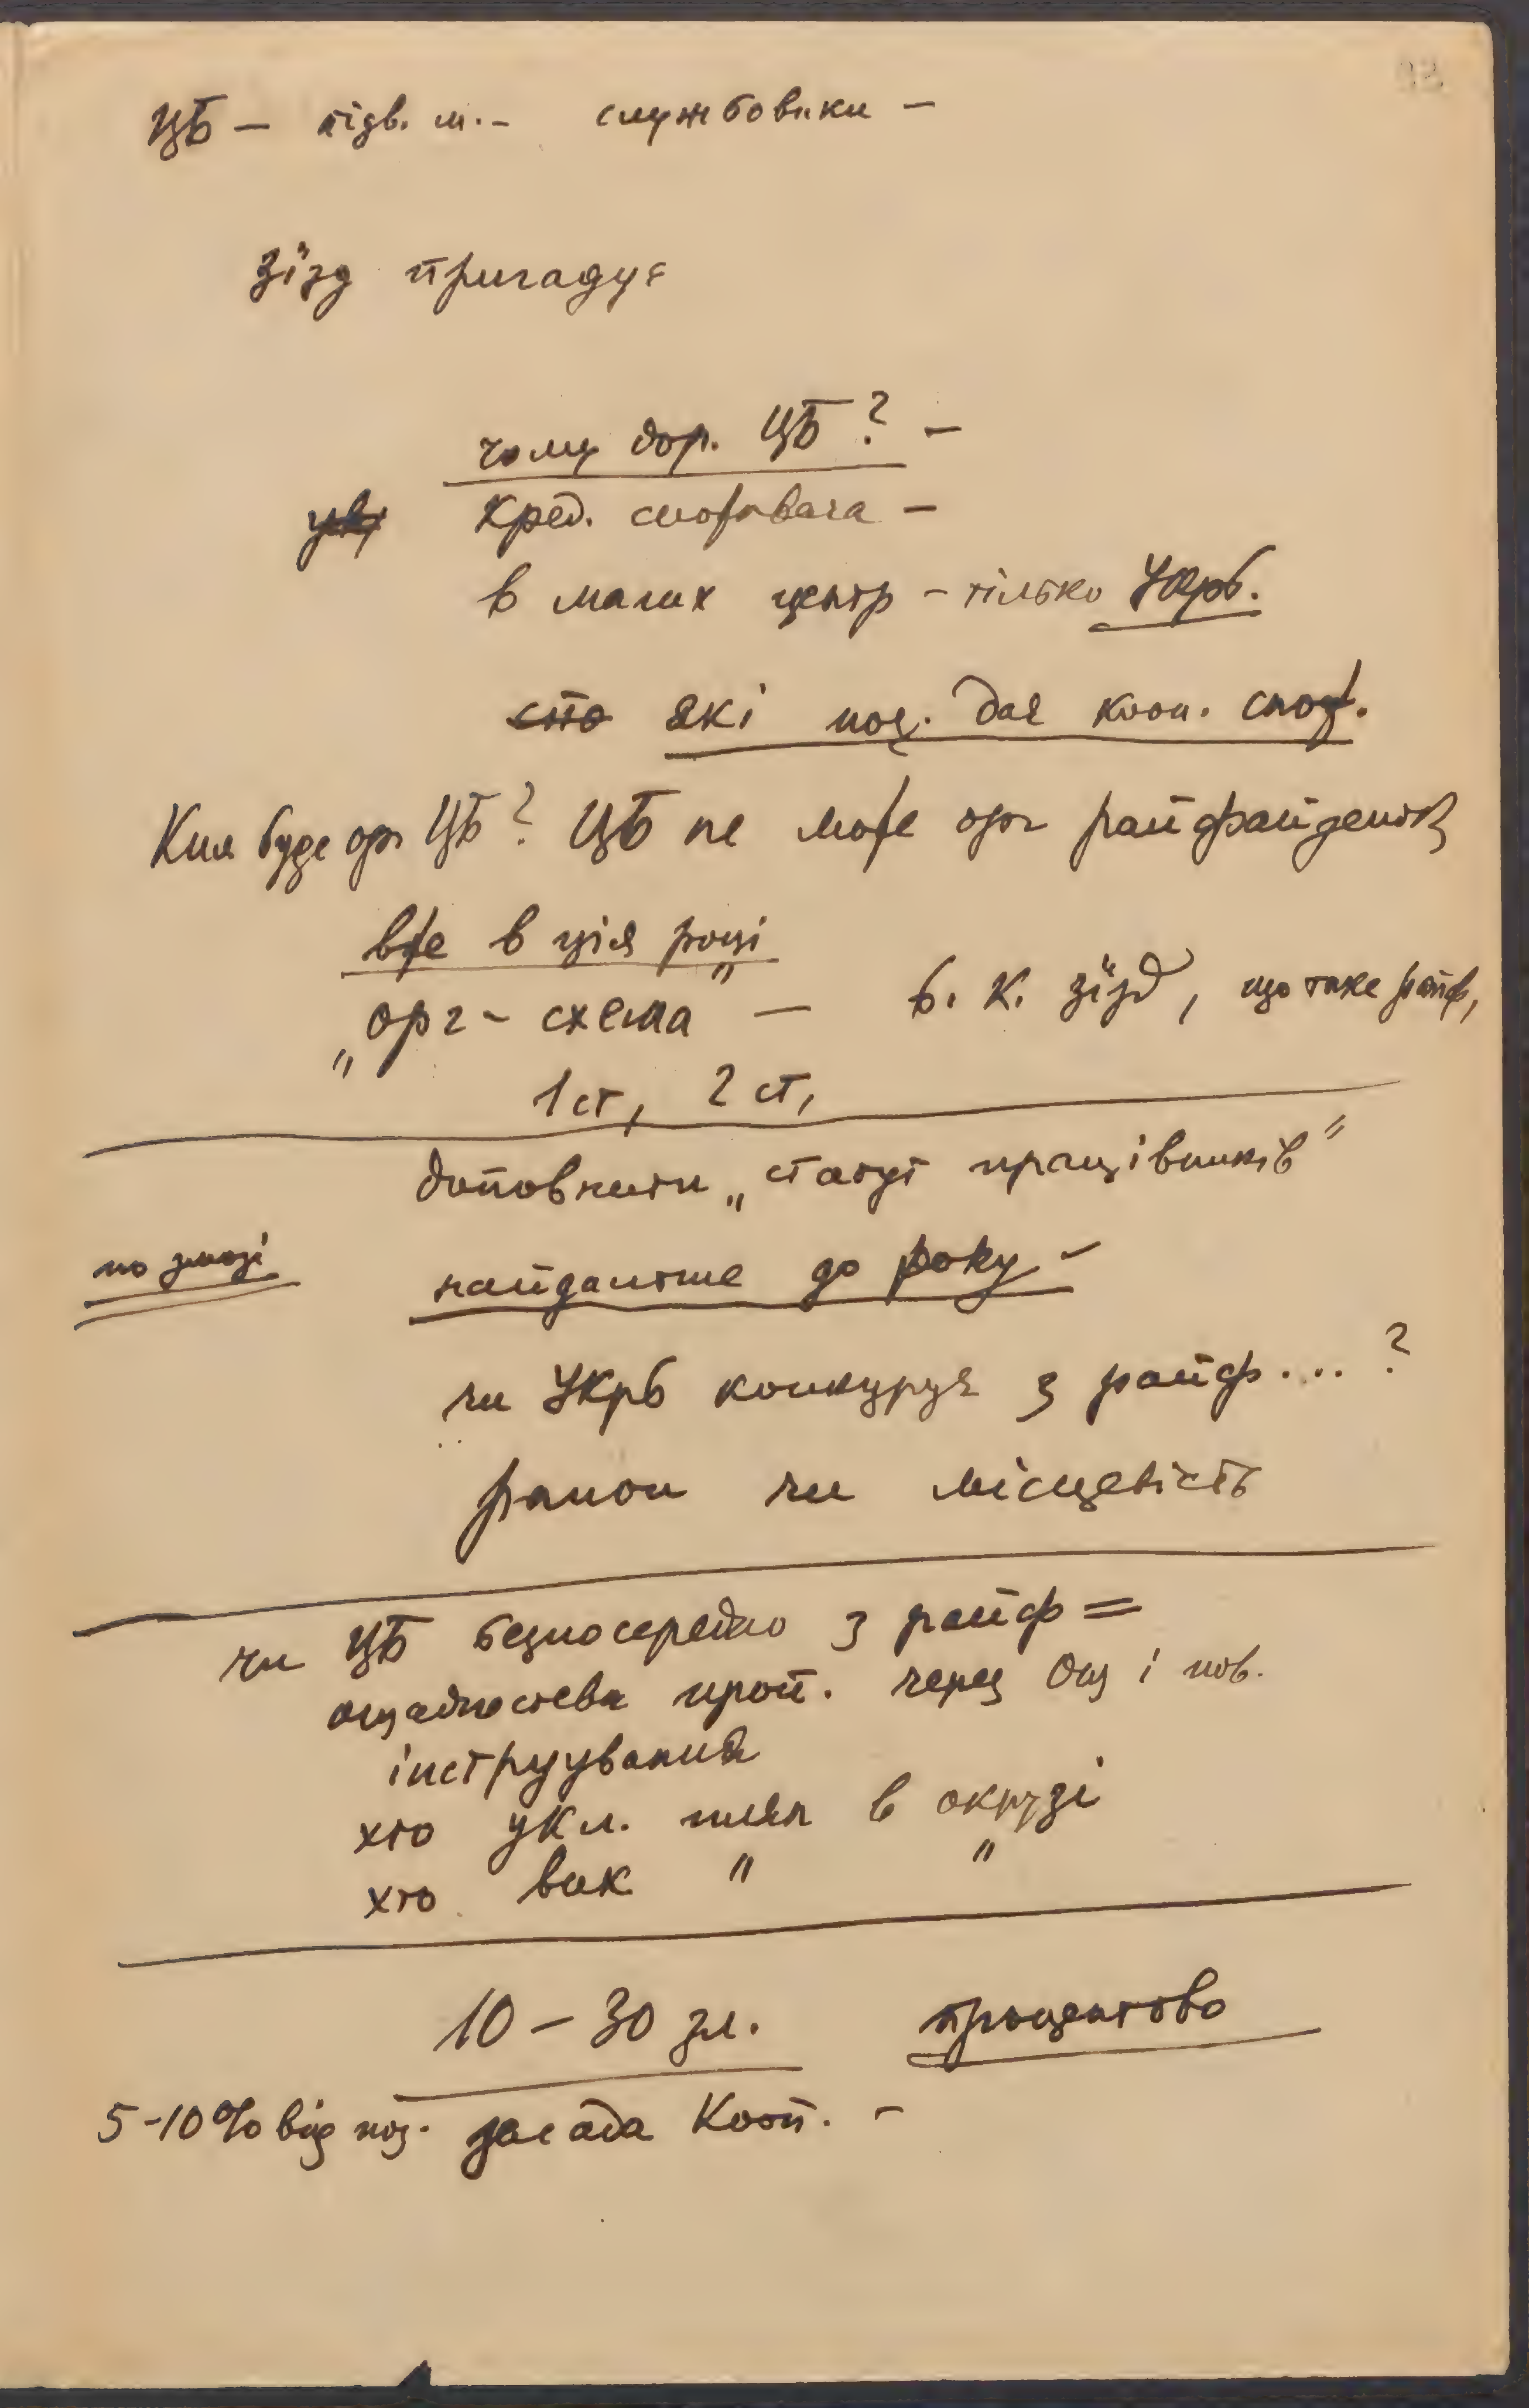 ЦБ — підв. м. – службовики —
Зїзд пригадує
чому дор. ЦБ ? —
Кред. споживача —
в малих центр – тілько Укрб.
сто які поз. дає кооп. спож.
Ким буде орг ЦБ ? ЦБ не може орг райфайзенок
вже в цім році
„орг – схема" — б. к. зїзд, що таке райф,
1 ст, 2 ст,
доповнити „статут працівників"
по змозі найдальше до року –
чи Укрб конкурує з райф.... ?
район чи місцевість
чи ЦБ безпосередно з райф =
ощадностева проп. через Ощ і пов.
інструування
хто укл. плян в окрузі
хто вик " "
10 – 30 зл. процентово
5 – 10 % від поз. засада Кооп. –